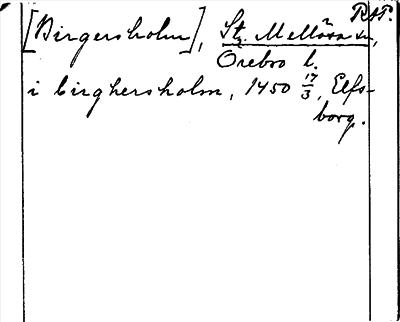 RAP.
[Birgersholm], St. Mellösa sn,
Örebro l.
i birghersholm, 1450 17/3, Elfs-
borg.